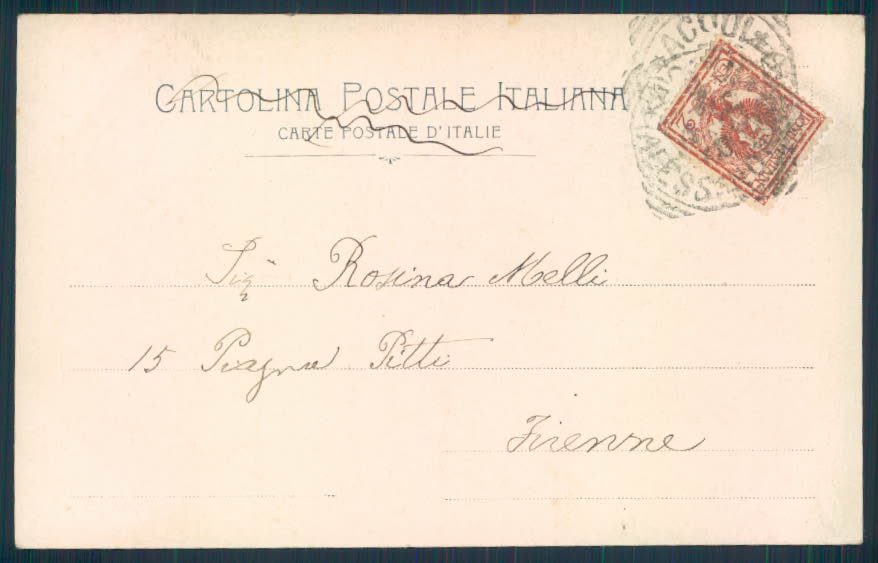 CARTOLINA POSTALE ITALIANA
CARTE POSTALE D'ITALIE
Sigª Rosina Melli
15 Piazza Pitti
Firenze